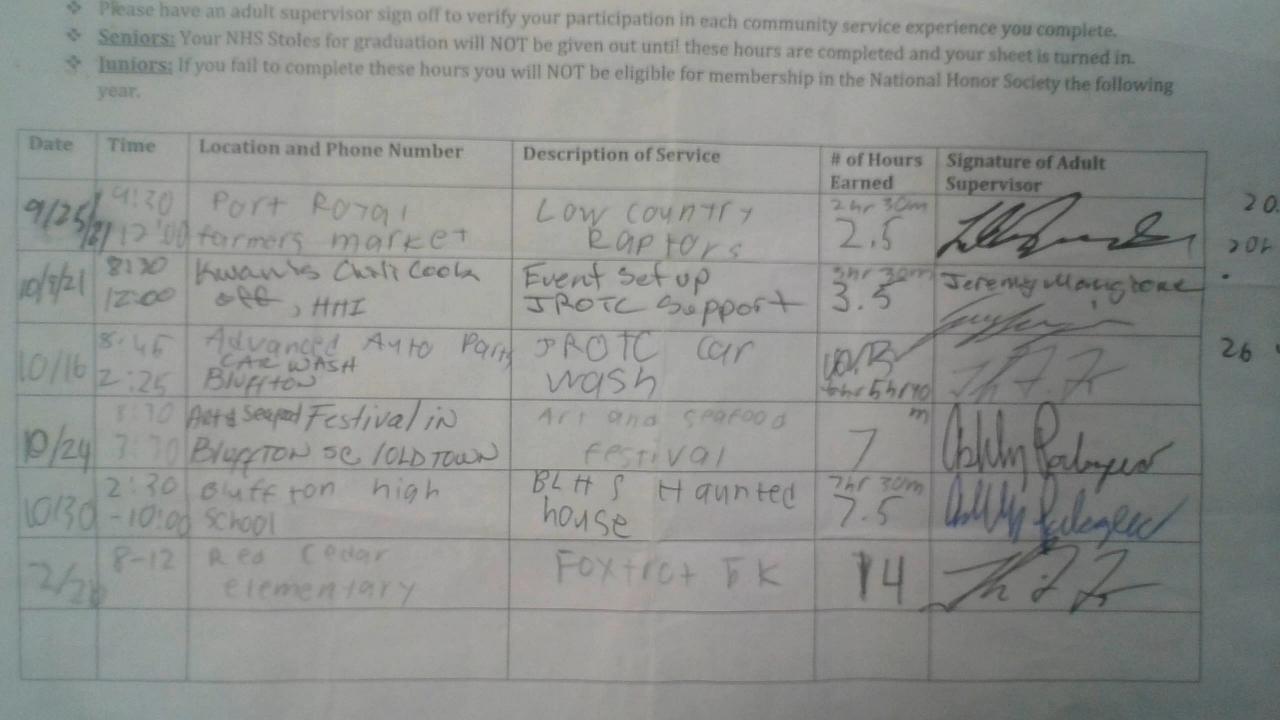 ❖ Please have an adult supervisor sign off to verify your participation in each community service experience you complete.
❖ Seniors: Your NHS Stoles for graduation will NOT be given out until these hours are completed and your sheet is turned in.
❖ Juniors: If you fail to complete these hours you will NOT be eligible for membership in the National Honor Society the following
year.
Date Time Location and Phone Number Description of Service # of Hours Earned Signature of Adult Supervisor
9/25/21 9:30 12:00 Port Royal farmers market Low country Raptors 2hr 30m 2.5
20
10/9/21 8:30 12:00 Kwanis Chili Cook off, HHI Event Set up JROTC Support 3hr 30m 3.5 Jeremy
10/16 8:45 2:25 Advanced Auto Parts CAR WASH Bluffton JROTC Car wash 5hr 40 m
26
10/24 3:30 Art & Seafood Festival in Bluffton SC / OLD TOWN Art and seafood festival 7
10/30 2:30 -10:00 Bluffton high school BLHS Haunted house 7hr 30m 7.5
8-12 Red Cedar elementary Foxtrot 5K 4